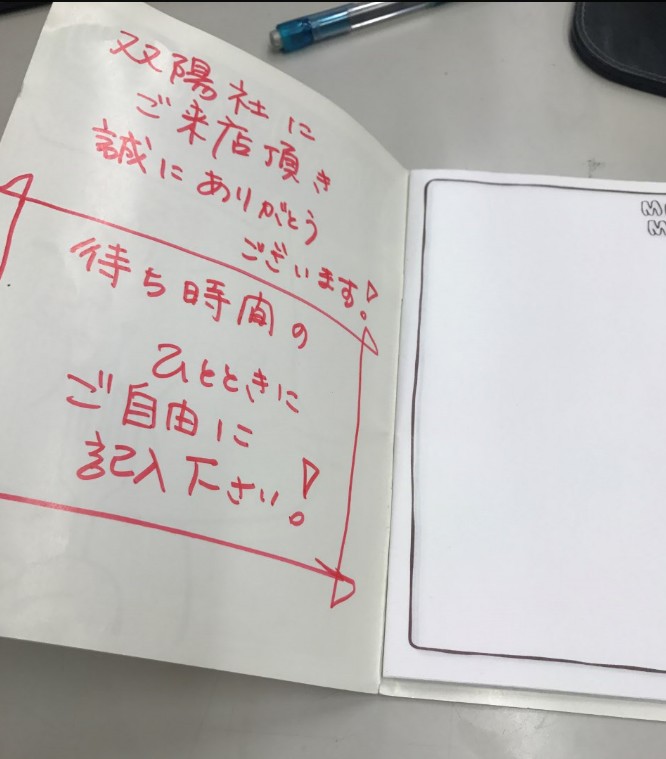 双陽社に
ご来店頂き
誠にありがとう
ございます!
待ち時間の
ひとときに
ご自由に
記入下さい!